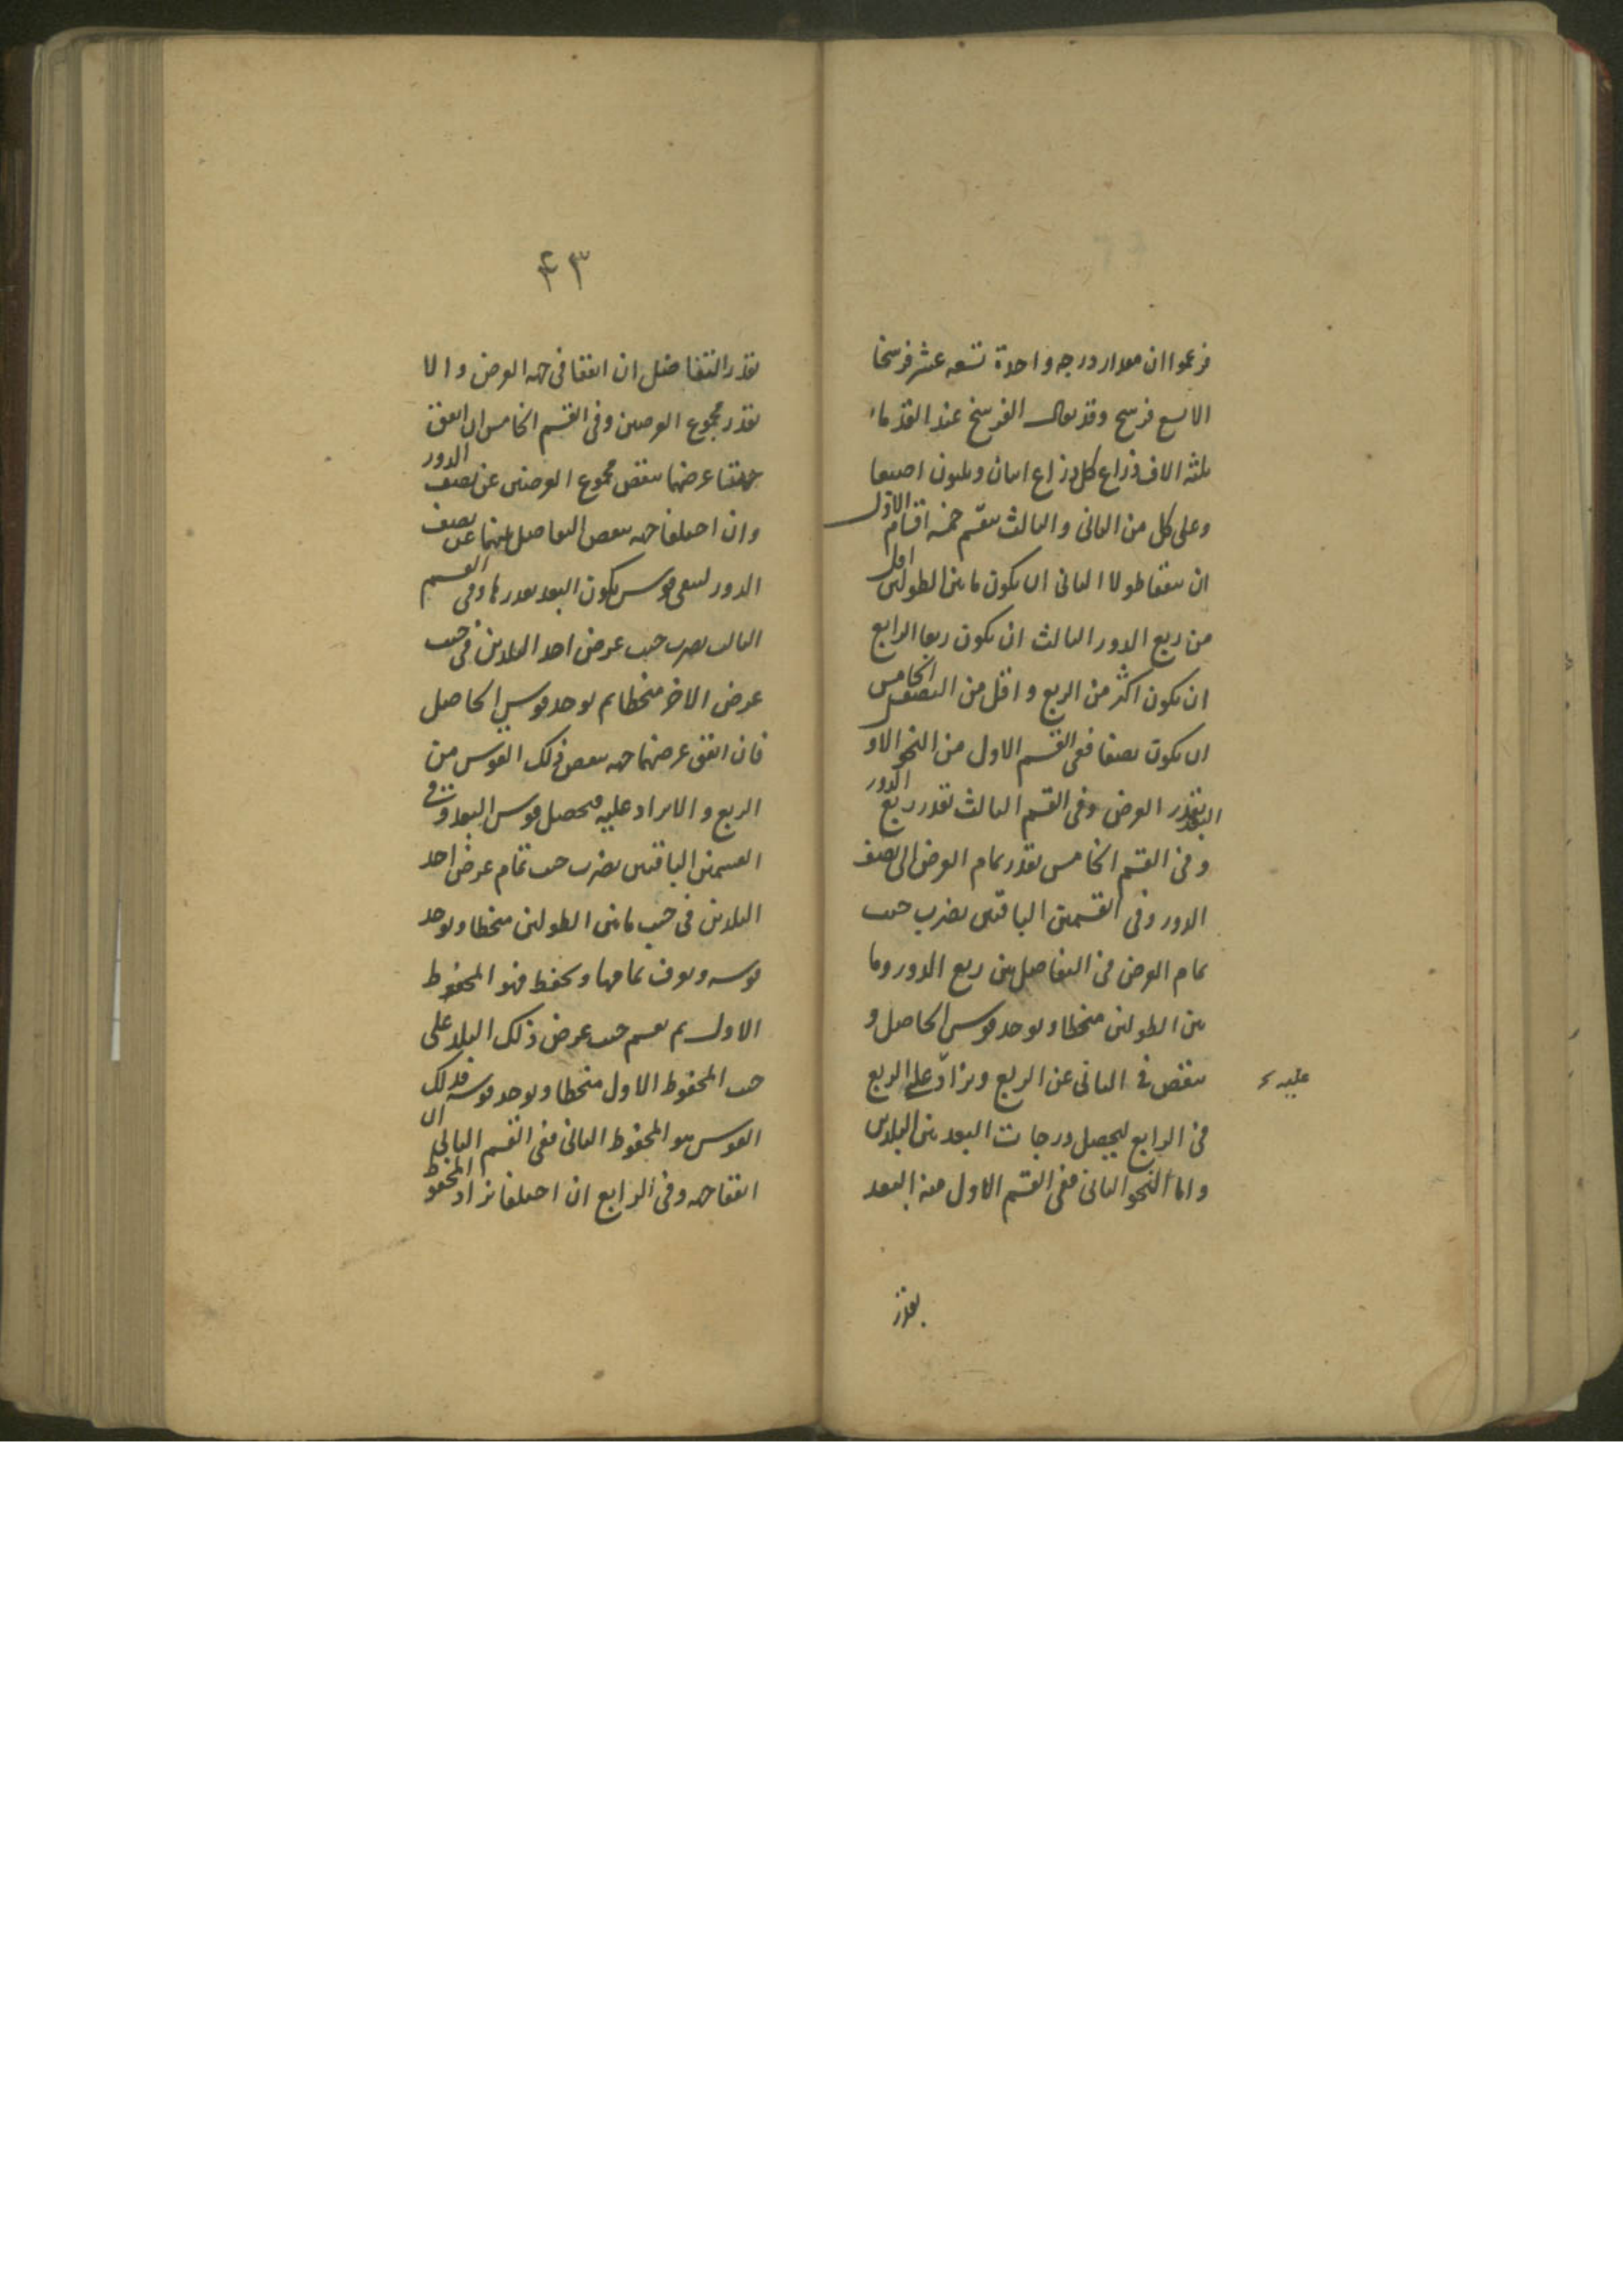 فزعموا ان مقدار درجه واحدة تسعه عشر فرسخا
الا تسع فرسخ وقد يقال الفرسخ عند القدماء
ثلثه الاف ذراع كل ذراع اثنان وثلثون اصبعا
وعلى كل من الثانى والثالث ينقسم خمسه اقسام الاول
ان يتفقا طولا الثانى ان يكون ما بين الطولين اقل
من ربع الدور الثالث ان يكون ربعا الرابع
ان يكون اكثر من الربع واقل من النصف الخامس
ان يكون نصفا ففى القسم الاول من النحو الاول
البعد بقدر العرض وفى القسم الثالث بقدر ربع الدور
وفى القسم الخامس بقدر تمام العرض الى نصف
الدور وفى القسمين الباقيين يضرب جيب
تمام العرض فى التفاضل بين ربع الدور وما
بين الطولين منحطا ويوخد قوس الحاصل و
ينقص فى الثانى عن الربع ويزاد على الربع
عليه
فى الرابع ليحصل درجات البعد بين البلدين
واما النحو الثانى ففى القسم الاول منه البعد
بقدر
٤٣
بقدر التفاضل ان اتفقا فى جهه العرض والا
بقدر مجموع العرضين وفى القسم الخامس ان اتفق
جهتا عرضهما ينقص مجموع العرضين عن نصف الدور
وان اختلفا جهه ينقص التفاضل بينهما عن نصف
الدور ليبقى قوس يكون البعد بقدرها وفى القسم
الثالث يضرب جيب عرض احد البلدين فى جيب
عرض الاخر منحطا ثم يوخد قوس الحاصل
فان اتفق عرضهما جهه ينقص ذلك القوس من
الربع والا يزاد عليه فيحصل قوس البعد وفى
القسمين الباقيين يضرب جيب تمام عرض احد
البلدين فى جيب ما بين الطولين منحطا ويوخد
قوسه ويعرف تمامها ويحفظ فهو المحفوظ
الاول ثم يقسم جيب عرض ذلك البلد على
جيب المحفوظ الاول منحطا ويوخد قوسه فذلك
القوس هو المحفوظ الثانى ففى القسم الثانى ان
اتفقا جهه وفى الرابع ان اختلفا يزاد المحفوظ